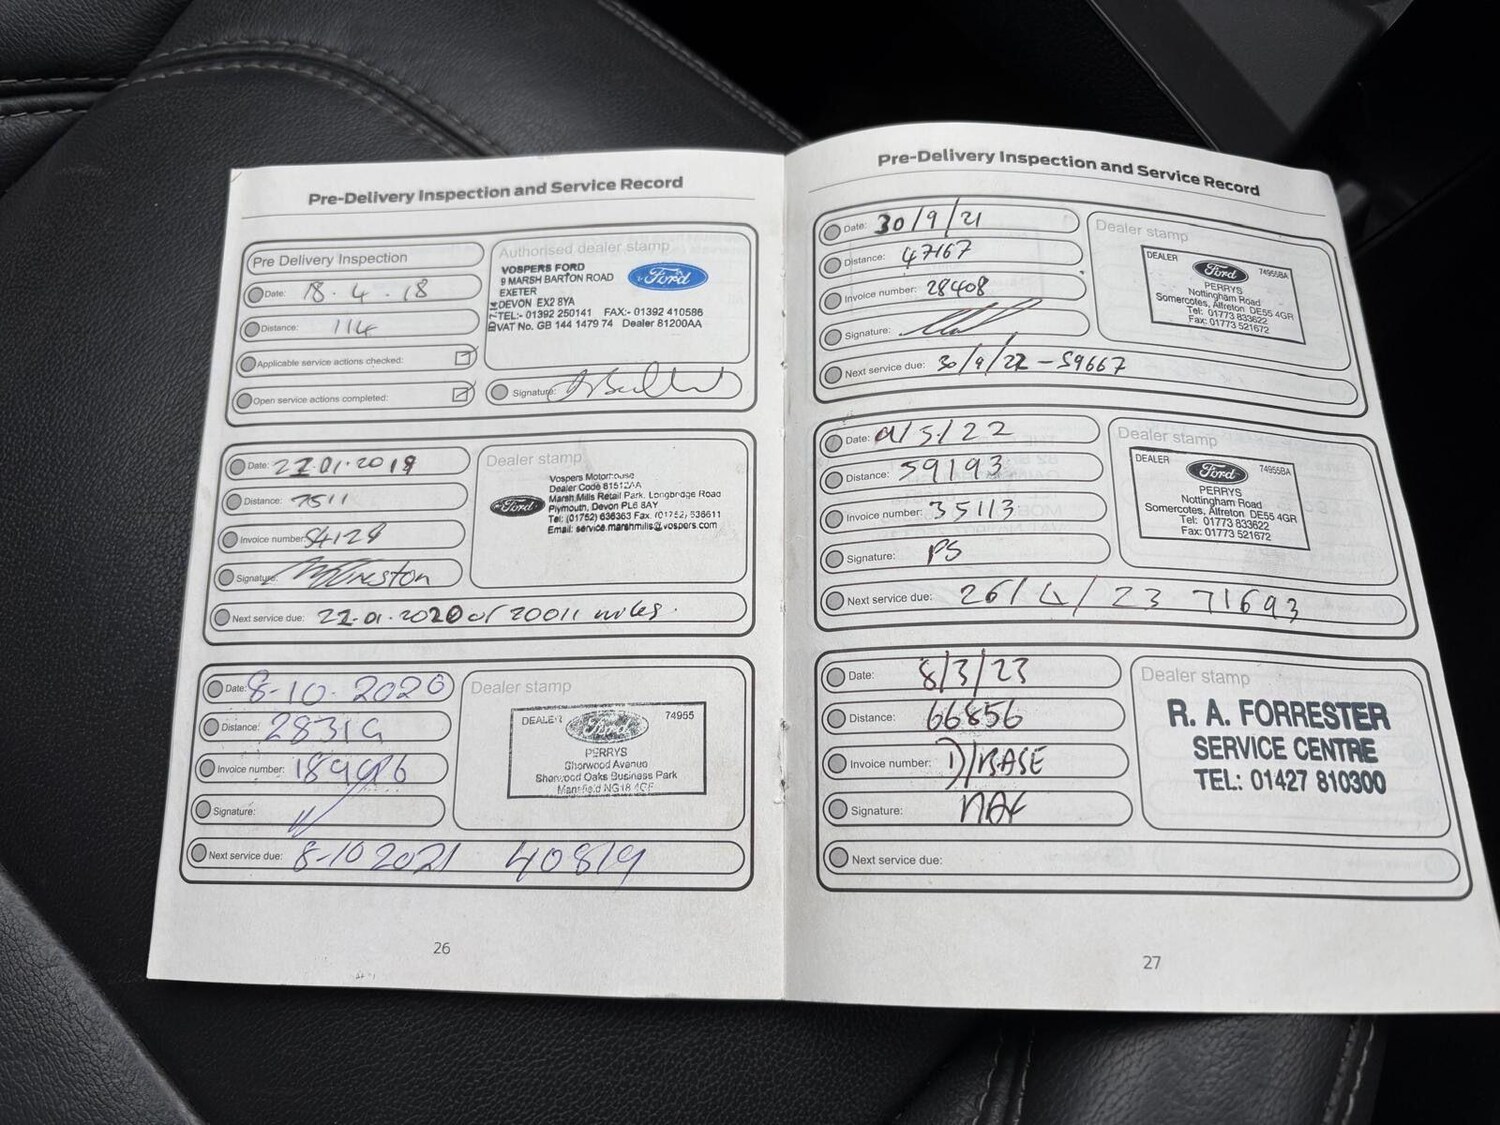 Pre-Delivery Inspection and Service Record
Pre Delivery Inspection
Date: 18.4.18
Distance: 114
Applicable service actions checked:
Open service actions completed:
Authorised dealer stamp
VOSPERS FORD
9 MARSH BARTON ROAD
EXETER
DEVON EX2 8YA
TEL:- 01392 250141 FAX:- 01392 410586
VAT No. GB 144 1479 74 Dealer 81200AA
Ford
Signature:
Date: 22.01.2019
Distance: 7511
Invoice number: 54128
Signature:
Next service due: 22.01.2020 or 20011 miles.
Dealer stamp
Ford
Vospers Motorhouse
Dealer Code
Marsh Mills Retail Park, Longbridge Road
Plymouth, Devon PL6 8AY
Tel: (01752) 636363 Fax. (01752)
Email: service.marshmills@vospers.com
Date: 8-10-2020
Distance: 28319
Invoice number:
Signature:
Next service due: 8-10 2021 40819
Dealer stamp
DEALER 74955
Ford
PERRYS
Sherwood Avenue
Sherwood Oaks Business Park
Mansfield NG18
26
Pre-Delivery Inspection and Service Record
Date: 30/9/21
Distance: 47167
Invoice number: 28408
Signature:
Next service due: 30/9/22 - 59667
Dealer stamp
DEALER Ford 74955BA
PERRYS
Nottingham Road
Somercotes, Alfreton DE55 4GR
Tel: 01773 833622
Fax: 01773 521672
Date: /5/22
Distance: 59193
Invoice number: 35113
Signature: PS
Next service due: 26/4/23 71693
Dealer stamp
DEALER Ford 74955BA
PERRYS
Nottingham Road
Somercotes, Alfreton DE55 4GR
Tel: 01773 833622
Fax: 01773 521672
Date: 8/3/23
Distance: 66856
Invoice number: D/BASE
Signature:
Next service due:
Dealer stamp
R. A. FORRESTER
SERVICE CENTRE
TEL: 01427 810300
27